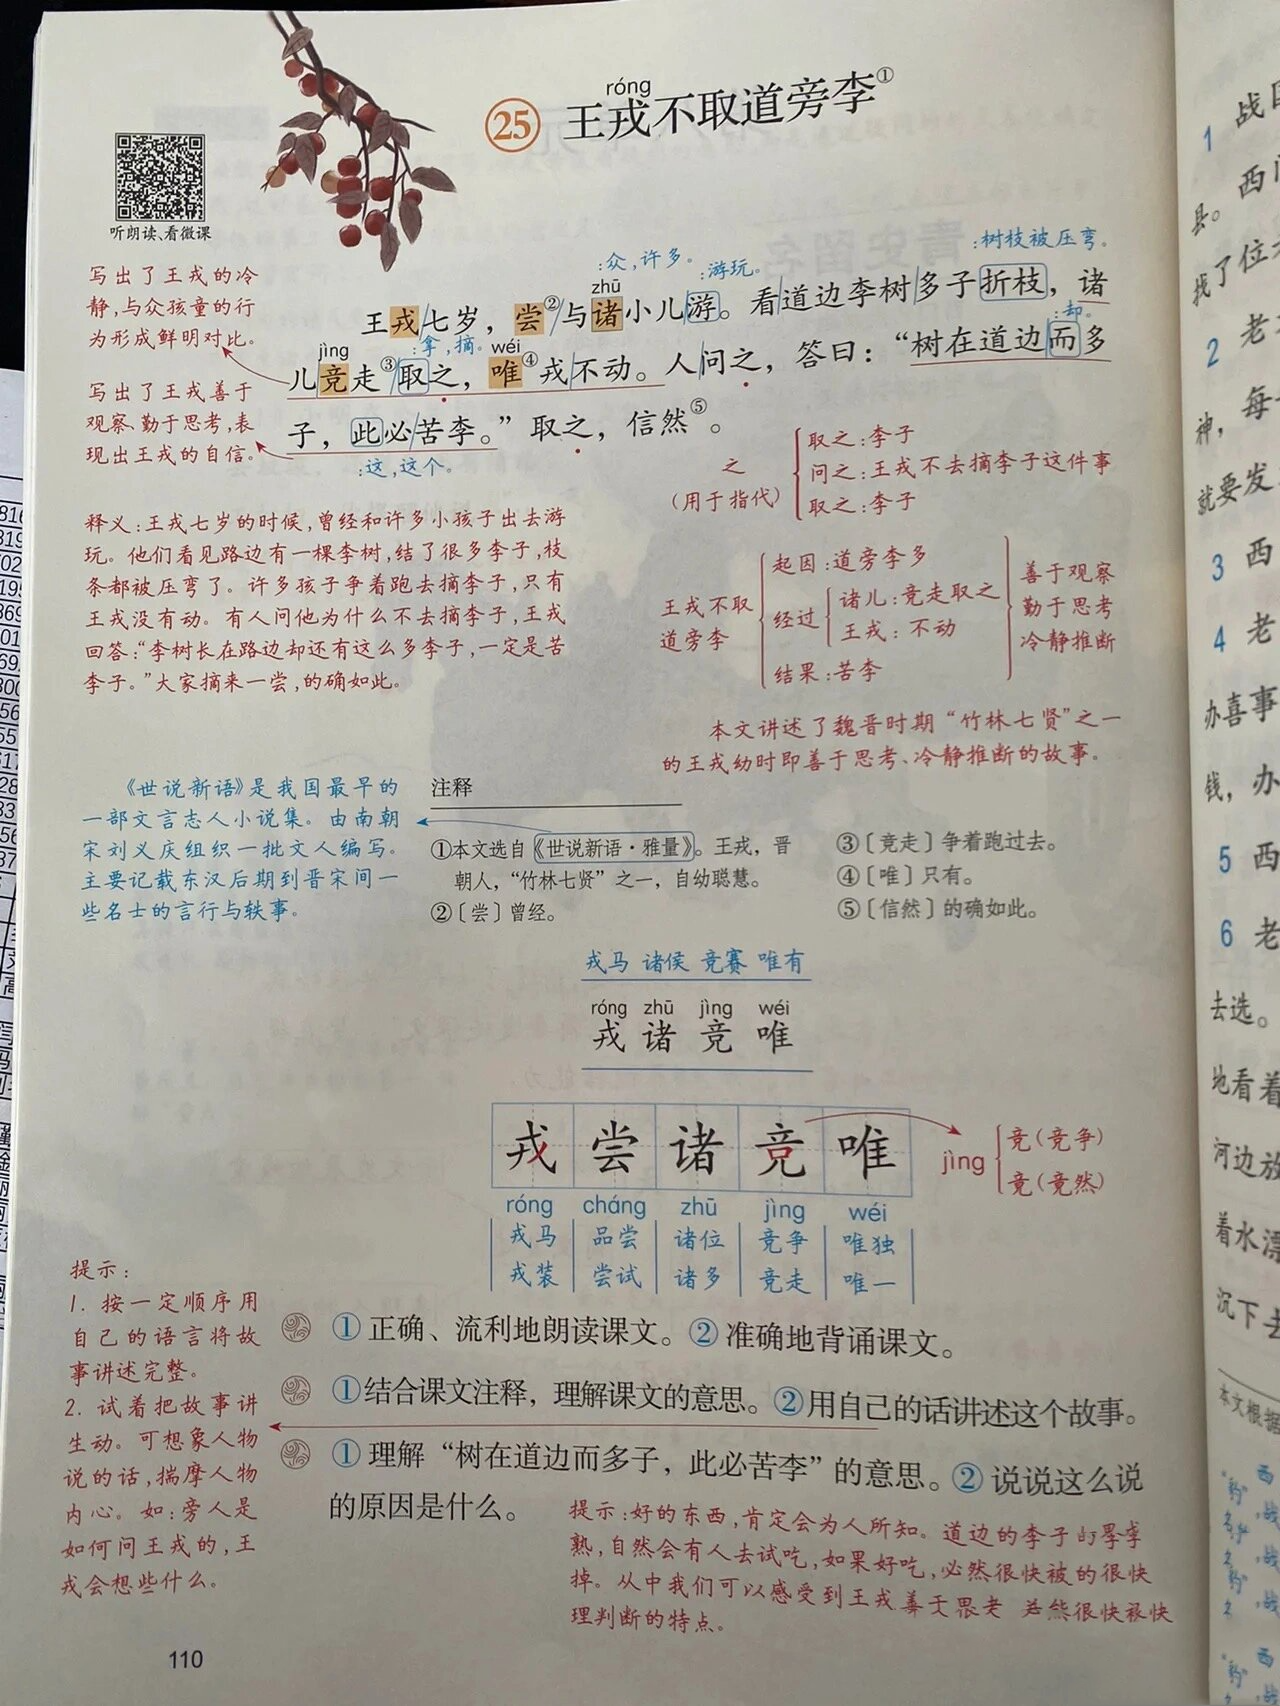 róng
㉕ 王戎不取道旁李①
听朗读、看微课
写出了王戎的冷
静,与众孩童的行
为形成鲜明对比。
写出了王戎善于
观察、勤于思考,表
现出王戎的自信。
:众,许多。
:游玩。
:树枝被压弯。
zhū
王戎七岁，尝②与诸小儿游。看道边李树多子折枝，诸
:拿,摘。
:却。
jìng wéi
儿竞走③取之，唯④戎不动。人问之，答曰：“树在道边而多
子，此必苦李。”取之，信然⑤。
:这,这个。
之
(用于指代)
取之:李子
问之:王戎不去摘李子这件事
取之:李子
释义:王戎七岁的时候,曾经和许多小孩子出去游
玩。他们看见路边有一棵李树,结了很多李子,枝
条都被压弯了。许多孩子争着跑去摘李子,只有
王戎没有动。有人问他为什么不去摘李子,王戎
回答:“李树长在路边却还有这么多李子,一定是苦
李子。”大家摘来一尝,的确如此。
王戎不取
道旁李
起因:道旁李多
经过
诸儿:竞走取之
王戎:不动
结果:苦李
善于观察
勤于思考
冷静推断
本文讲述了魏晋时期“竹林七贤”之一
的王戎幼时即善于思考、冷静推断的故事。
《世说新语》是我国最早的
一部文言志人小说集。由南朝
宋刘义庆组织一批文人编写。
主要记载东汉后期到晋宋间一
些名士的言行与轶事。
注释
①本文选自《世说新语·雅量》。王戎，晋
朝人，“竹林七贤”之一，自幼聪慧。
②〔尝〕曾经。
③〔竞走〕争着跑过去。
④〔唯〕只有。
⑤〔信然〕的确如此。
戎马 诸侯 竞赛 唯有
róng zhū jìng wéi
戎 诸 竞 唯
戎 尝 诸 竞 唯
róng cháng zhū jìng wéi
戎马 品尝 诸位 竞争 唯独
戎装 尝试 诸多 竞走 唯一
jìng
竞(竞争)
竟(竟然)
提示:
1. 按一定顺序用
自己的语言将故
事讲述完整。
2. 试着把故事讲
生动。可想象人物
说的话,揣摩人物
内心。如:旁人是
如何问王戎的,王
戎会想些什么。
①正确、流利地朗读课文。②准确地背诵课文。
①结合课文注释，理解课文的意思。②用自己的话讲述这个故事。
①理解“树在道边而多子，此必苦李”的意思。②说说这么说
的原因是什么。
提示:好的东西,肯定会为人所知。道边的李子
熟,自然会有人去试吃,如果好吃,必然很快被的很快
掉。从中我们可以感受到王戎善于 很快
理判断的特点。
110
1 战
西门
县。
找了位
2 老
神，每
就要发
3 西
4 老
办喜事
钱，办
5 西
6 老
去选。
地看着
河边放
着水漂
沉下去
本文根据